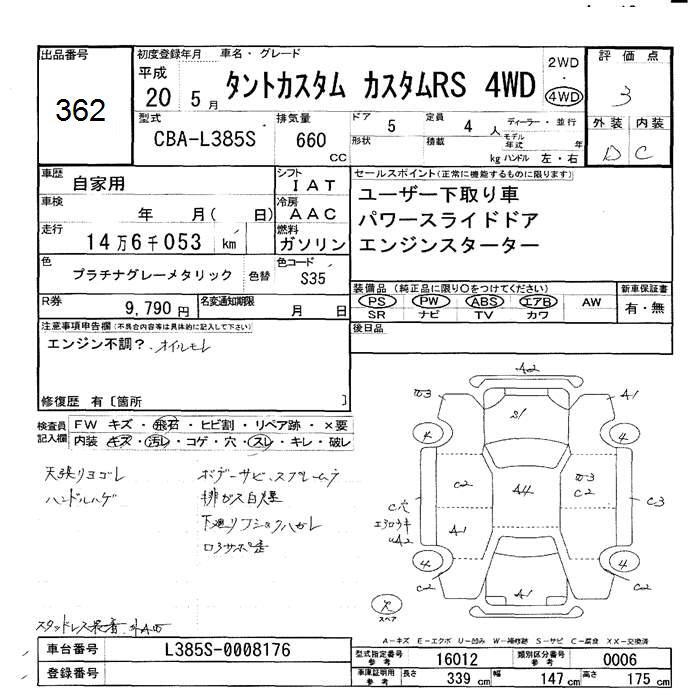 出品番号
362
初度登録年月
平成
20 5 月
車名・グレード
タントカスタム カスタムRS 4WD
2WD
・
4WD
評価点
3
外装 内装
D C
型式
CBA-L385S
排気量
660
cc
ドア 5
形状
定員 4 人
積載 kg
ディーラー・並行
モデル年式 年
ハンドル 左・右
車歴
自家用
シフト
IAT
車検
年 月( 日)
冷房
AAC
走行
14万6千053 km
燃料
ガソリン
色
プラチナグレーメタリック
色替
色コード
S35
R券
9,790 円
名変通知期限
月 日
セールスポイント(正常に機能するものに限ります)
ユーザー下取り車
パワースライドドア
エンジンスターター
装備品 (純正品に限り○をつけてください)
PS PW ABS エアB AW
SR ナビ TV カワ
新車保証書
有・無
後日品
注意事項申告欄(不具合内容等は具体的に記入して下さい)
エンジン不調?.オイルモレ
修復歴 有〔箇所 〕
検査員
記入欄
FW キズ・飛石・ヒビ割・リペア跡・×要
内装 キズ・汚レ・コゲ・穴・スレ・キレ・破レ
天張りヨゴレ
ハンドルハゲ
ボデーサビ、スプレー
排ガス白煙
下廻り
スタッドレス
A2
A1
S1
4
4
C2
A4
C2
C3
C穴
A2
A1
4
4
C2
C2
A1
スペア
A-キズ E-エクボ U-凹み W-補修跡 S-サビ C-腐食 XX-交換済
車台番号
L385S-0008176
登録番号
型式指定番号
参考
16012
類別区分番号
参考
0006
車庫証明用
参考
長さ 339 cm
幅 147 cm
高さ 175 cm